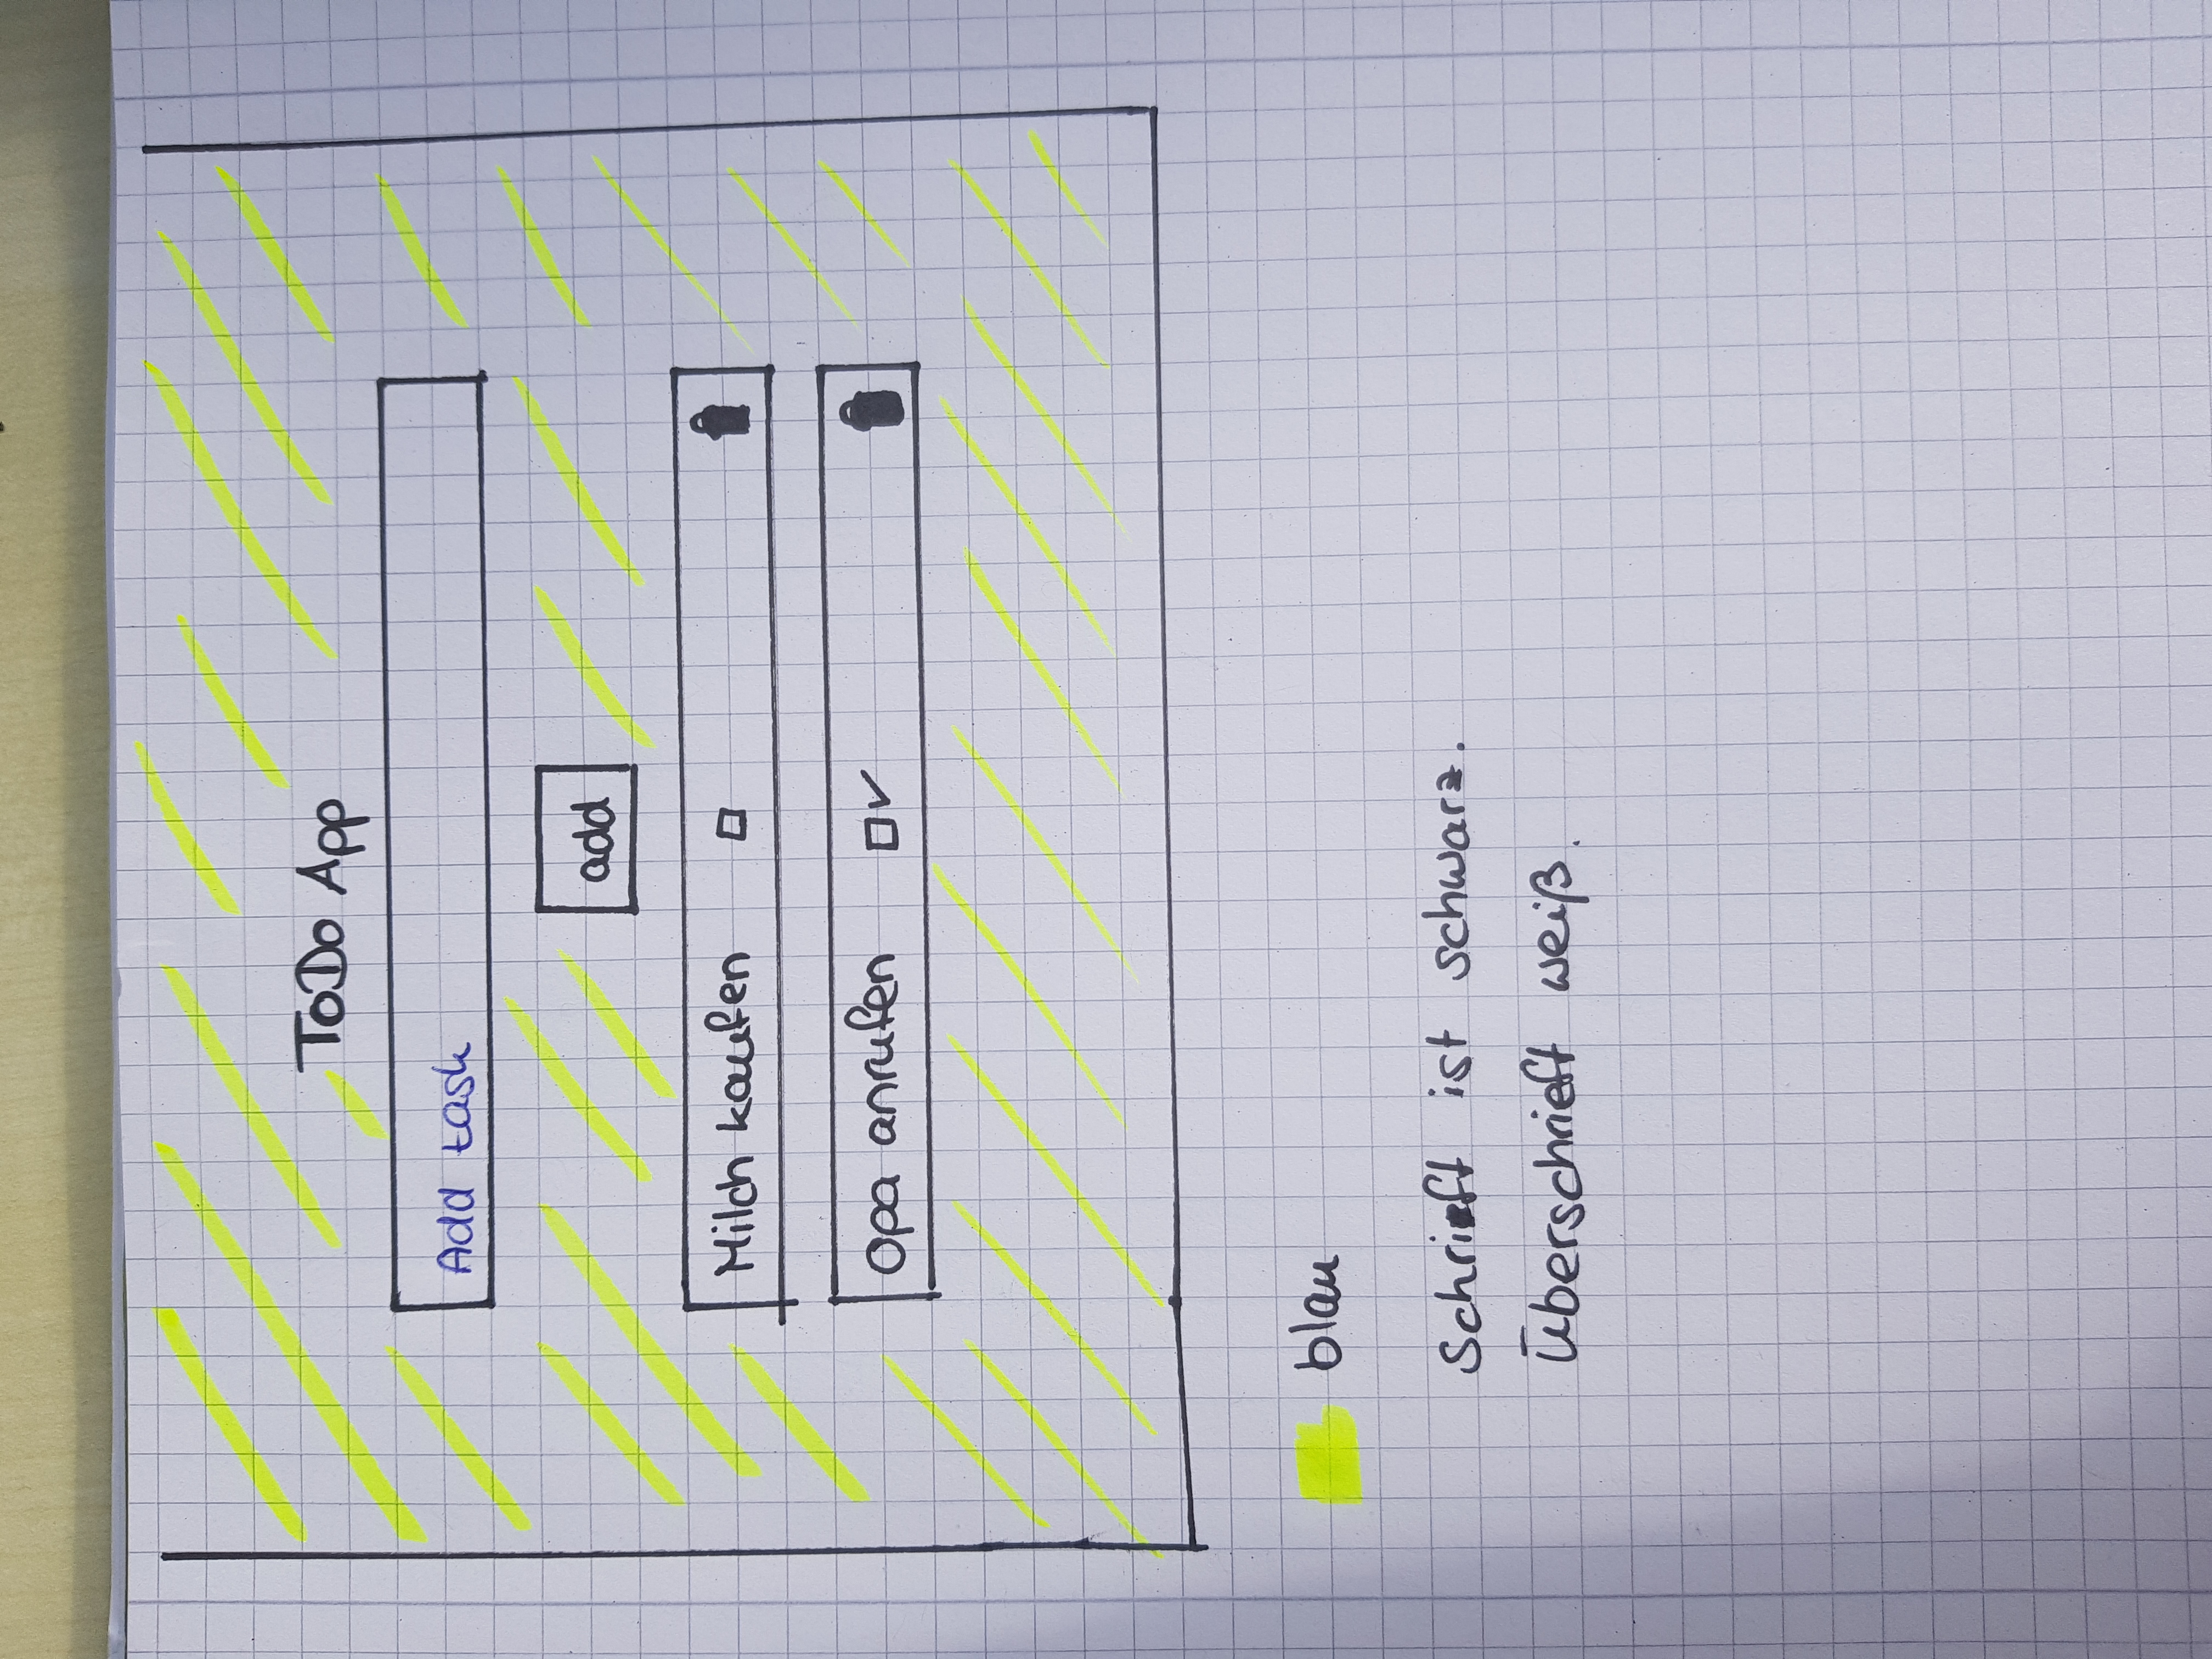 ToDo App
Add task
add
Milch kaufen
Opa anrufen
blau
Schrift ist schwarz.
Überschrieft weiß.